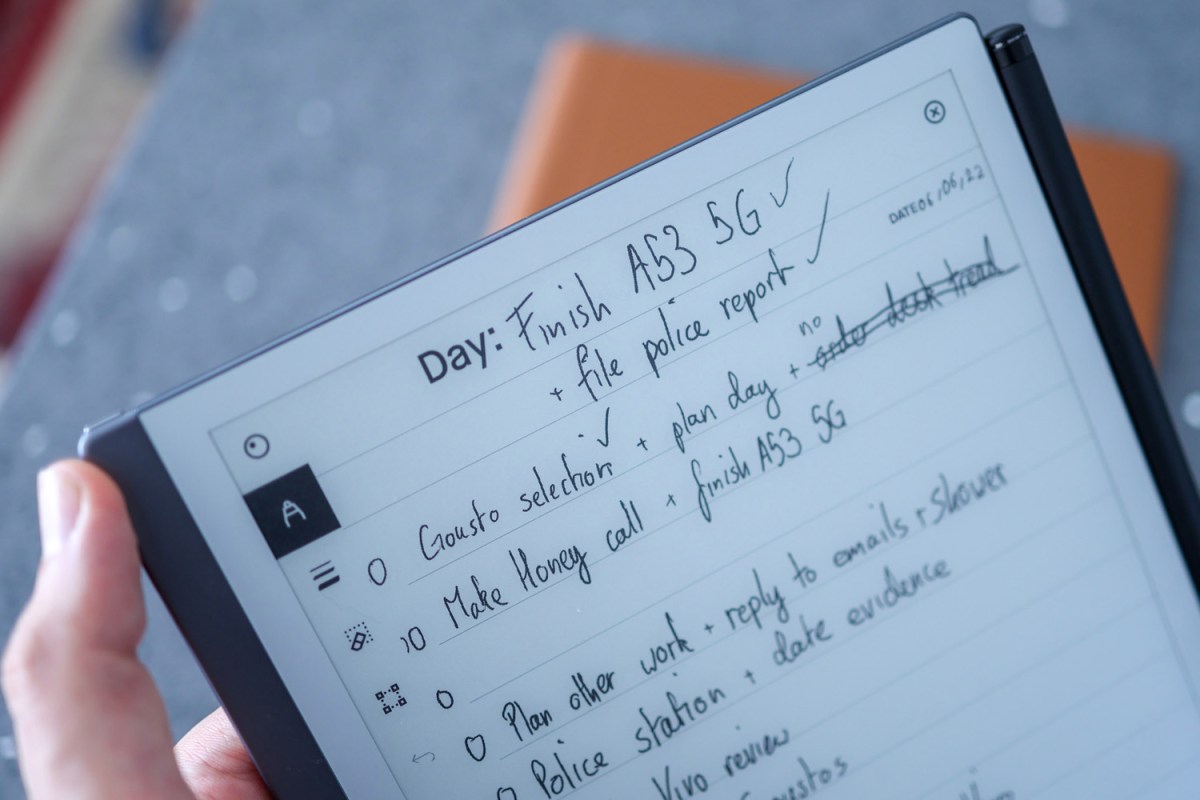 Day: Finish A53 5G ✓
DATE 06/06/22
+ file police report ✓
Gousto selection ✓ + plan day + no order desk tread
Make Honey call + finish A53 5G
Plan other work + reply to emails + Shower
Police station + date evidence
Vivo review